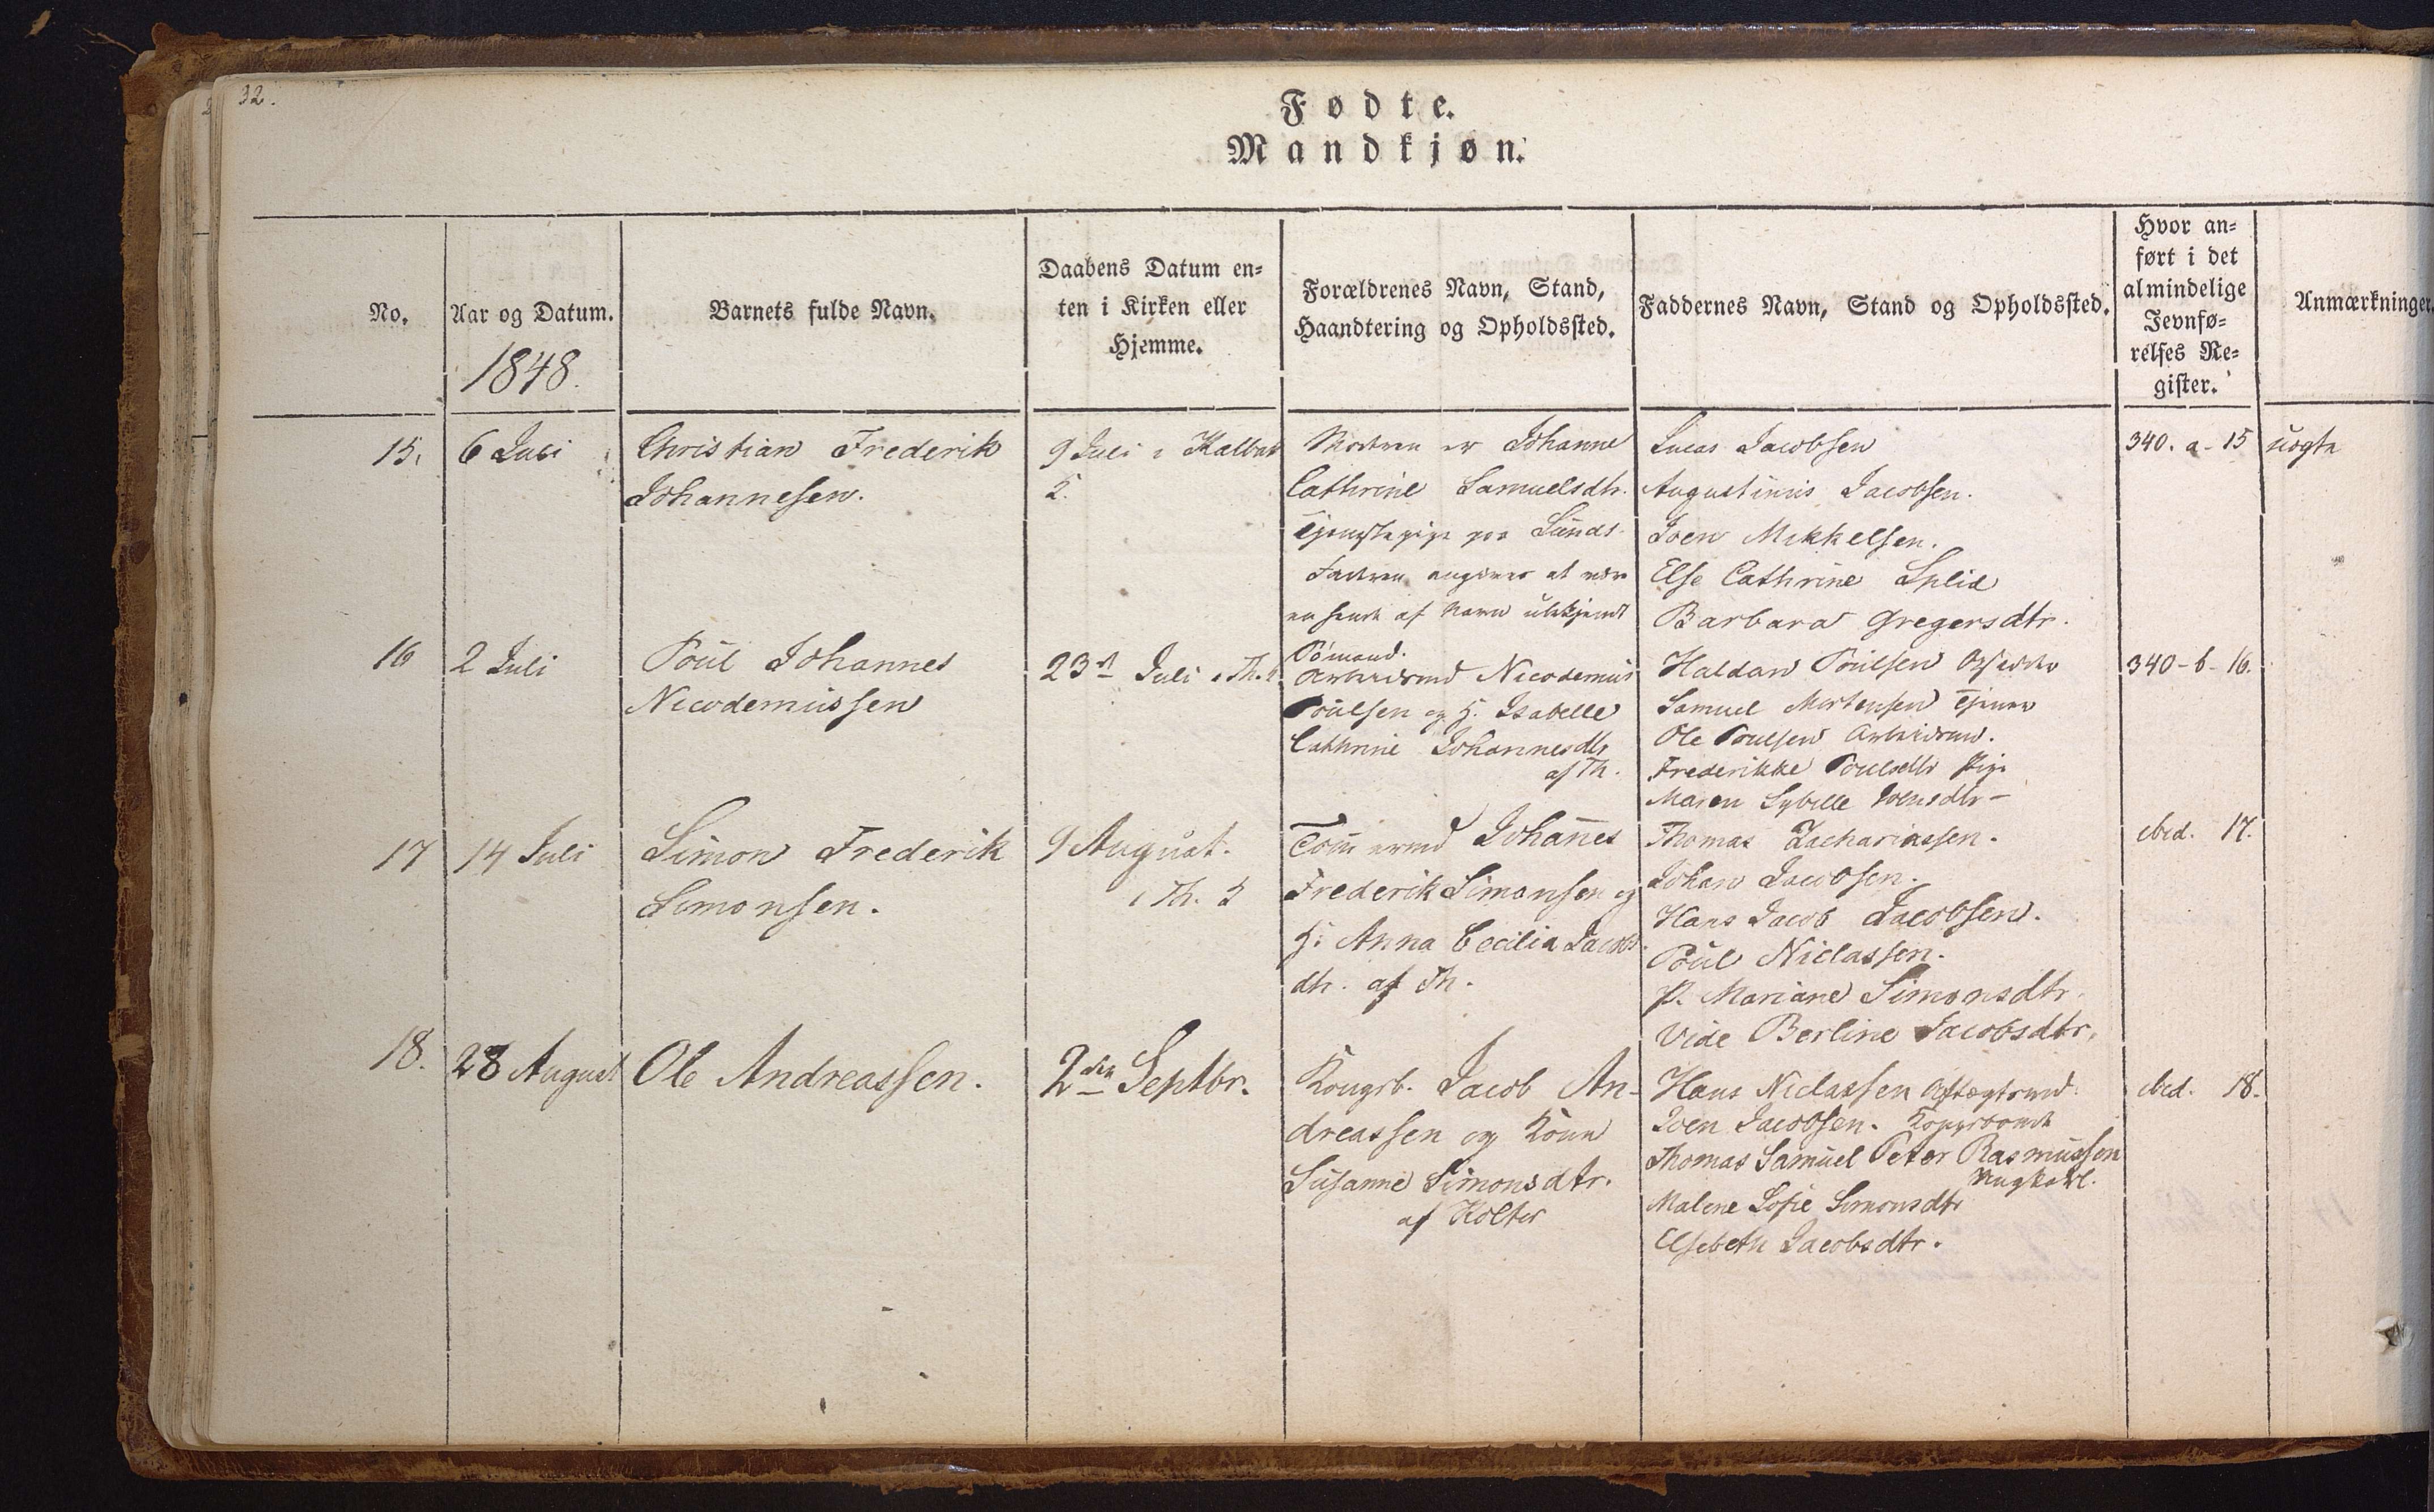 32.
Fødte.
Mandkjøn.
No.
Aar og Datum.
1848.
Barnets fulde Navn.
Daabens Datum en=
ten i Kirken eller
Hjemme.
Forældrenes Navn, Stand,
Haandtering og Opholdssted.
Faddernes Navn, Stand og Opholdssted.
Hvor an=
ført i det
almindelige
Jevnfø=
relses Re=
gister.
Anmærkninger.
15.
6 Juli
Christian Frederik
Johannesen.
9 Juli i Kalbak
K.
Moderen er Johanne
Cathrine Samuelsdtr.
Tjenestepige paa Sunds
Faderen angives at være
en hende af Navn ubekjendt
Sømand.
Lucas Jacobsen
Augustinus Jacobsen.
Joen Mikkelsen.
Else Cathrine Splid
Barbara Gregersdtr.
340. a-15
uægte
16
2 Juli
Poul Johannes
Nicodemussen
23d Juli i Th. K
Arbeidsmd Nicodemus
Poulsen og H. Isabelle
Cathrine Johannesdtr
af Th.
Haldan Poulsen
Samuel Mortensen Tjener
Ole Poulsen Arbeidsmd.
Frederikke Poulsdtr Pige
Maren Sybille Joensdtr -
340-b-16.
17
14 Juli
Simon Frederik
Simonsen.
9 August.
i Th. K
Tømmermd Johannes
Frederik Simonsen og
H. Anna Cecilia Jacobs
dtr. af Th.
Thomas Zachariassen.
Johan Jacobsen.
Hans Jacob Jacobsen.
Poul Niclassen.
P. Mariane Simonsdtr.
Vide Berline Jacobsdtr.
ibid. 17.
18.
28 August
Ole Andreassen.
2den Septbr.
Kongsb. Jacob An-
dreassen og Kone
Susanne Simonsdtr.
af Kolter
Hans Niclassen Aftægtsmd.
Joen Jacobsen. Kongsbonde
Thomas Samuel Peter Rasmussen
Ungkarl.
Malene Sofie Simonsdtr
Elsebeth Jacobsdtr.
ibid. 18.